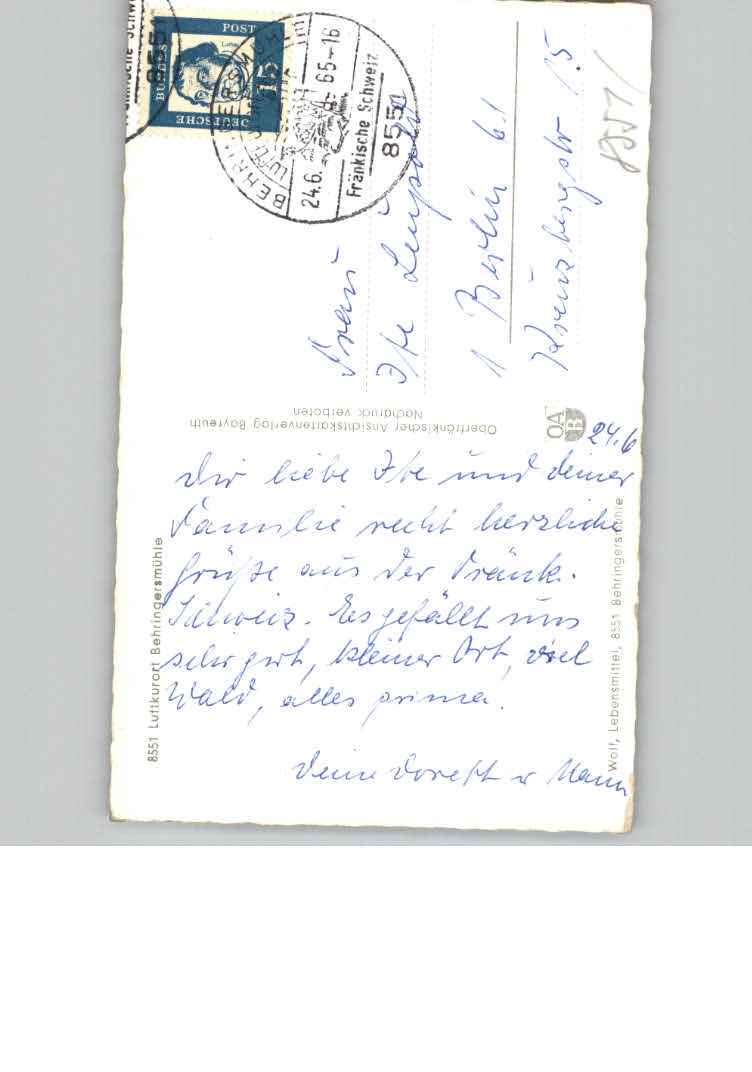 24.6
Dir liebe Ite und deiner
Familie recht herzliche
Grüße aus der Fränk.
Schweiz. Es gefällt uns
sehr gut, kleiner Ort, viel
Wald, alles prima.
Deine Dorett u Mann
Frau
Ite
1 Berlin 61
Kreuzbergstr 15
8551
DEUTSCHE
BUNDESPOST
15
24.6.65-16
Fränkische Schweiz
8551
Fränkische Schweiz
8551
Oberfränkischer Ansichtskartenverlag Bayreuth
Nachdruck verboten
OA
B
8551 Luftkurort Behringersmühle
Wolf, Lebensmittel, 8551 Behringersmühle